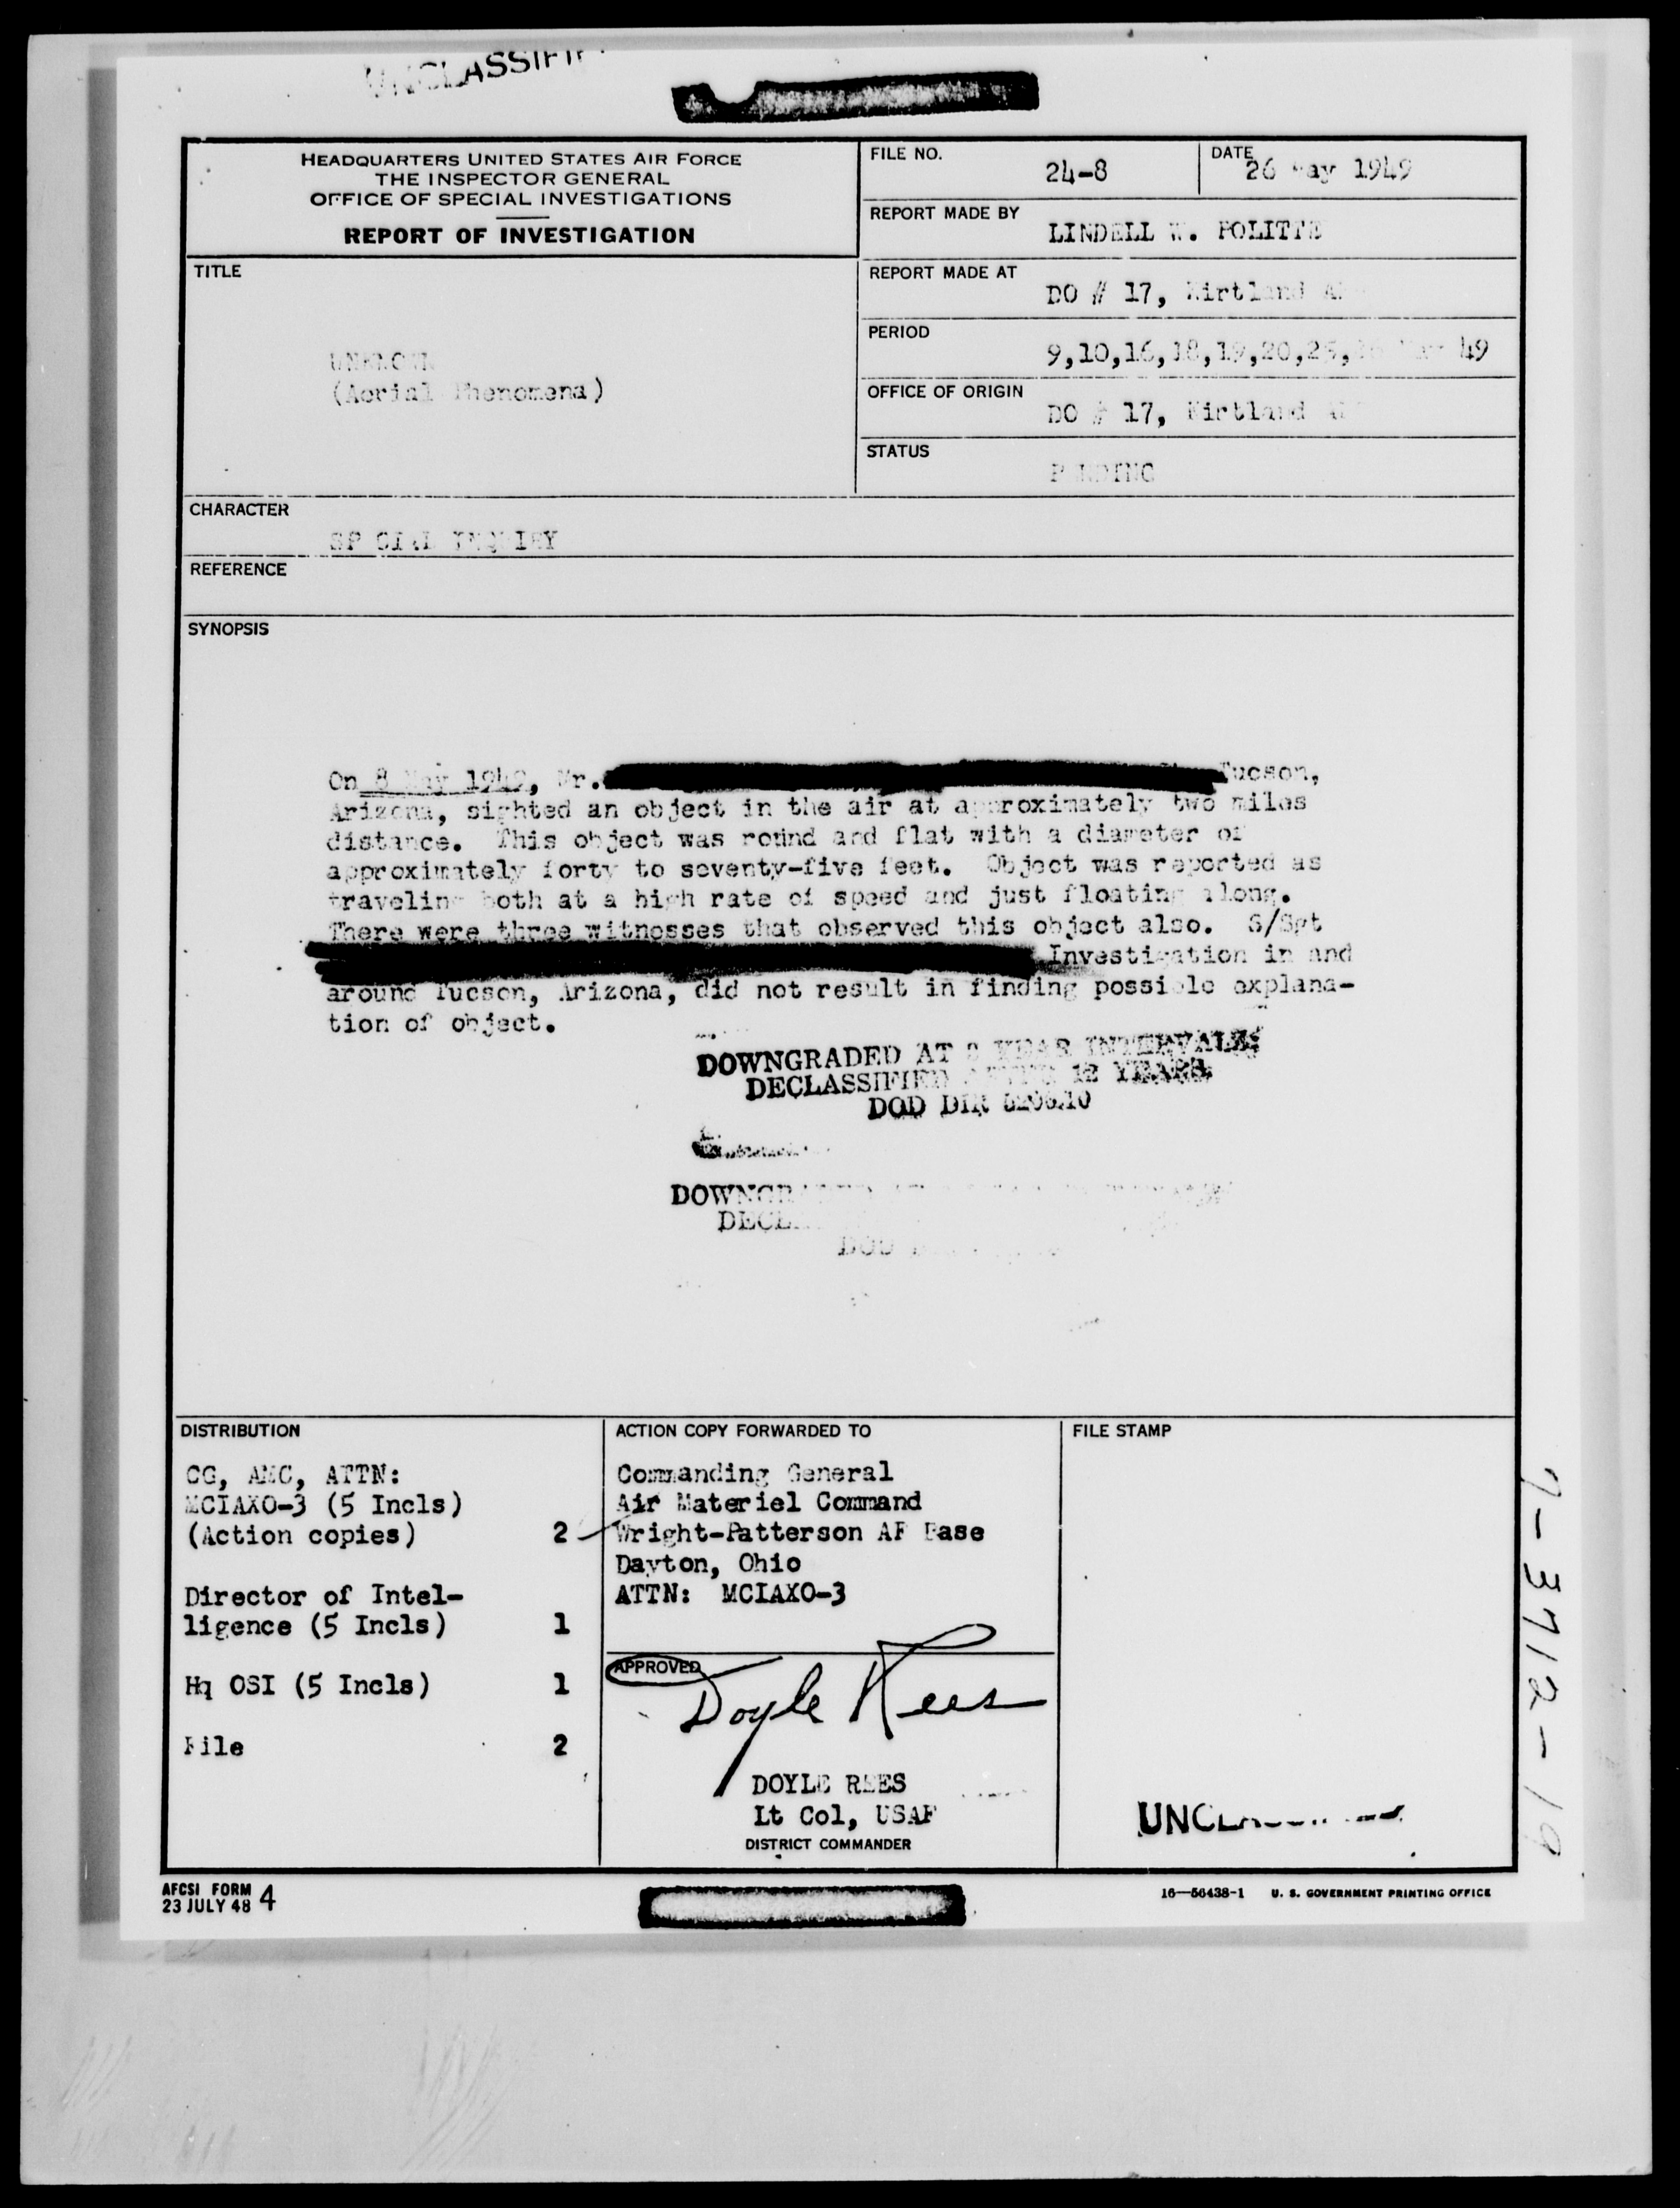 HEADQUARTERS UNITED STATES AIR FORCE
THE INSPECTOR GENERAL
OFFICE OF SPECIAL INVESTIGATIONS
REPORT OF INVESTIGATION
FILE NO.
24-8
DATE
26 May 1949
REPORT MADE BY
LINDELL W. POLITTE
REPORT MADE AT
DO # 17, Kirtland
PERIOD
9,10,16,18,19,20,25, 49
OFFICE OF ORIGIN
DO # 17, Kirtland
STATUS
PENDING
TITLE
UNKNOWN
(Aerial Phenomena)
CHARACTER
SPECIAL INQUIRY
REFERENCE
SYNOPSIS
On 8 May 1949, Mr. Tucson,
Arizona, sighted an object in the air at approximately two miles
distance. This object was round and flat with a diameter of
approximately forty to seventy-five feet. Object was reported as
traveling both at a high rate of speed and just floating along.
There were three witnesses that observed this object also. S/Sgt
Investigation in and
around Tucson, Arizona, did not result in finding possible explana-
tion of object.
DOWNGRADED AT 3 YEAR INTERVALS;
DECLASSIFIED AFTER 12 YEARS.
DOD DIR 5200.10
DISTRIBUTION
CG, AMC, ATTN:
MCIAXO-3 (5 Incls)
(Action copies) 2
Director of Intel-
ligence (5 Incls) 1
Hq OSI (5 Incls) 1
File 2
ACTION COPY FORWARDED TO
Commanding General
Air Materiel Command
Wright-Patterson AF Base
Dayton, Ohio
ATTN: MCIAXO-3
APPROVED
Doyle Rees
DOYLE REES
Lt Col, USAF
DISTRICT COMMANDER
FILE STAMP
UNCLASSIFIED
7-3712-19
AFCSI FORM 4
23 JULY 48
16—56438-1 U. S. GOVERNMENT PRINTING OFFICE